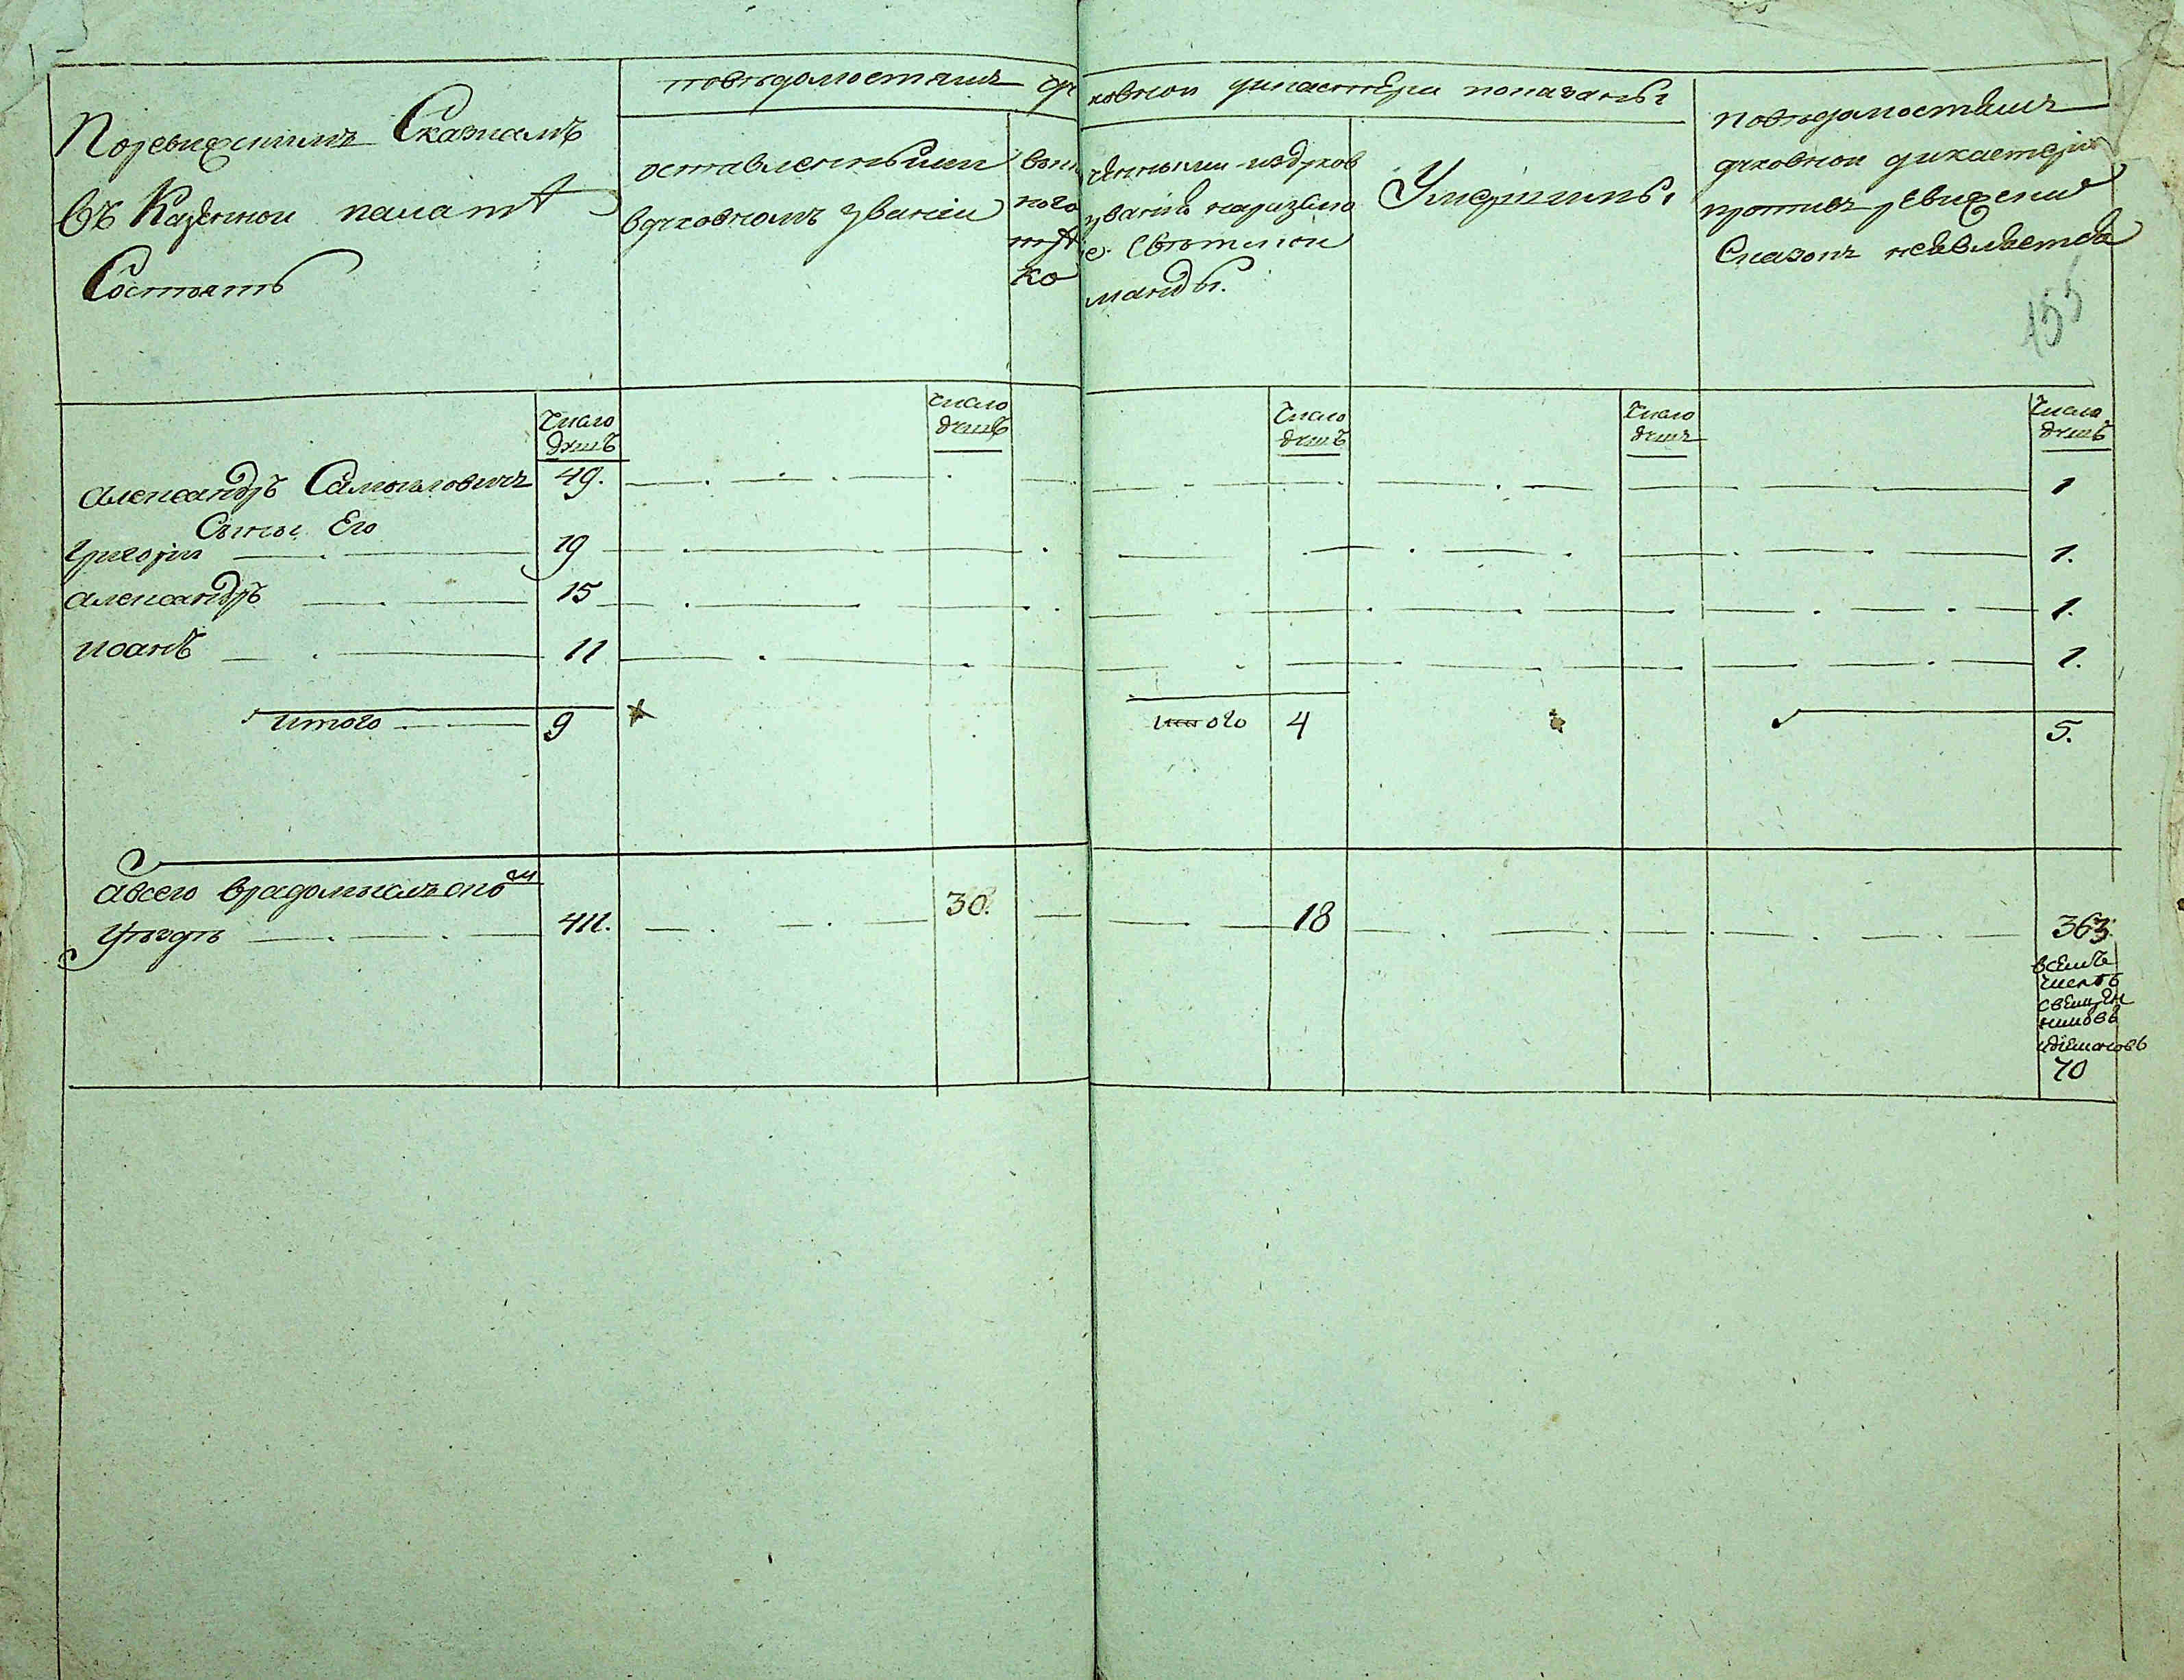 Поревизскимъ Сказкамъ
въ Казенной палатѣ
Состоятъ
повѣдомостямъ ду
ховной дикастерiи показаны
оставленными
вдуховномъ званiи
вык
ного
тѣ
ко
люченными издухов
званiя наразмо
е Свѣтскои
манды.
Умершимы
повѣдомостямъ
духовнои дикастерiи
противъ ревизских
Сказокъ неявляется
155
Число
душъ
Число
душъ
Число
душъ
Число
душъ
Число
душъ
Александръ Самойловичъ 49. 1
Сыны Его
Григорiи 19 1.
Александръ 15 1.
Иоанъ 11 1.
итого 9 итого 4 5.
Авсего врадомысльскомъ
уѣздѣ 411. 30. 18 363.
всемъ
числѣ
священ
никовъ
идiяконовъ
70